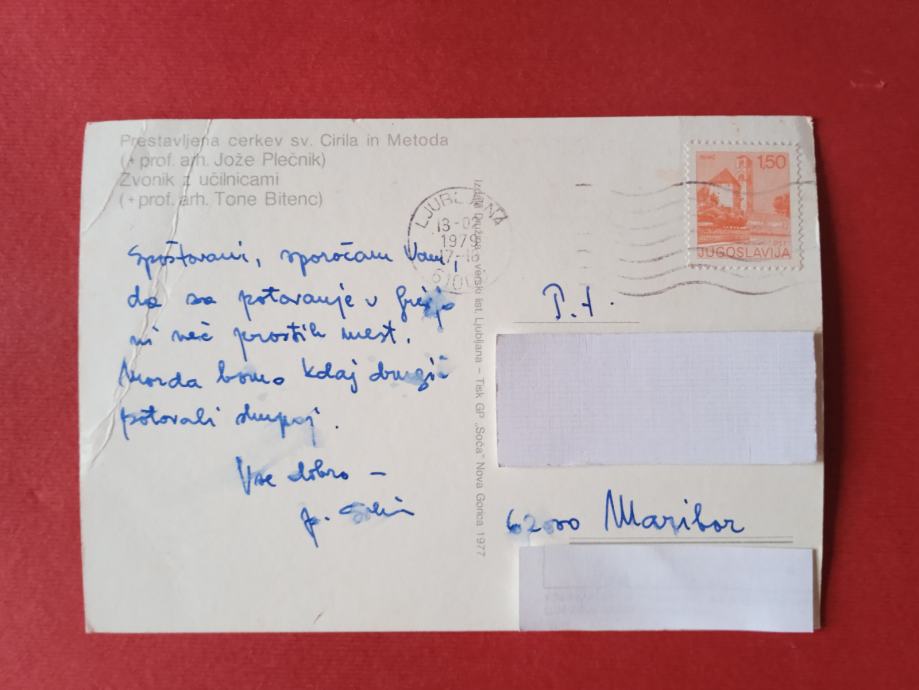 Prestavljena cerkev sv. Cirila in Metoda
(+ prof. arh. Jože Plečnik)
Zvonik z učilnicami
(+ prof. arh. Tone Bitenc)
Spoštovani, sporočam Vam,
da za potovanje v Grčijo
ni več prostih mest.
Morda bomo kdaj drugič
potovali skupaj.
Vse dobro –
Izdalo Družina verski list, Ljubljana – Tisk GP „Soča" Nova Gorica 1977
LJUBLJANA
1979
1,50
JUGOSLAVIJA
P.t.
62000 Maribor